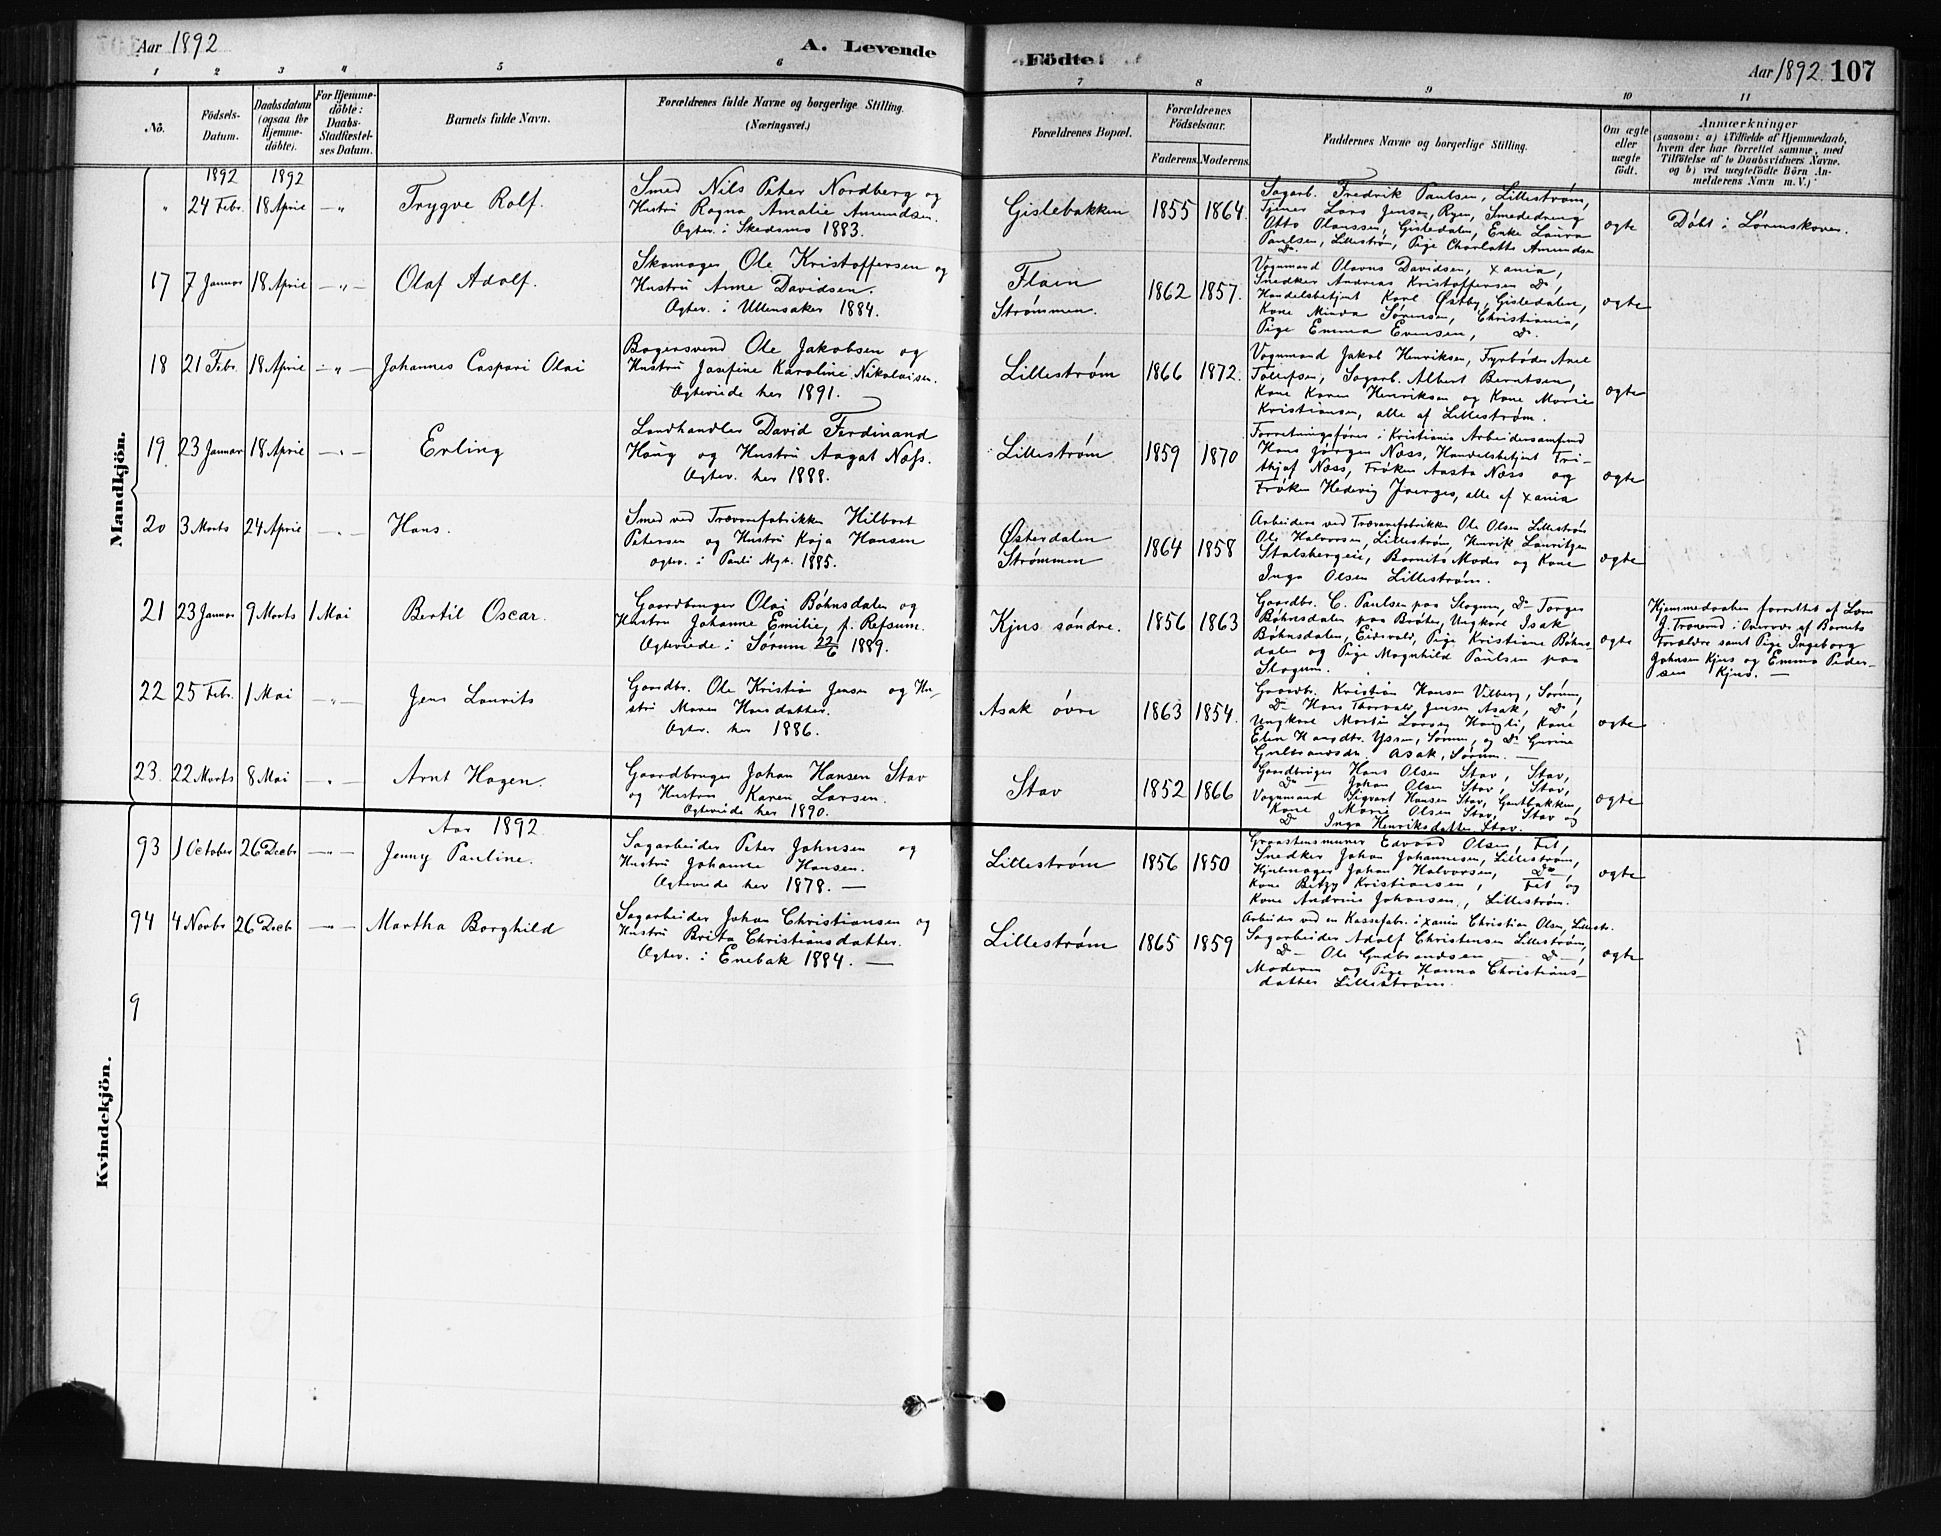 Aar 1892
A. Levende
Födte.
Aar 1892. 107
1 2 3 4 5 6 7 8 9 10 11
No.
Födsels-Datum.
Daabsdatum (ogsaa for Hjemme-döbte).
For Hjemme-döbte: Daabs-Stadfæstel-ses Datum.
Barnets fulde Navn.
Forældrenes fulde Navne og borgerlige Stilling. (Næringsvei.)
Forældrenes Bopæl.
Forældrenes Födselsaar.
Faderens. Moderens.
Faddernes Navne og borgerlige Stilling.
Om ægte eller uægte födt.
Anmærkninger
(saasom: a) i Tilfælde af Hjemmedaab,
hvem der har forrettet samme, med
Tilföielse af to Daabsvidners Navne.
og b) ved uægtefödte Börn An-
melderens Navn m. V.)
Mandkjön.
1892 1892
" 24 Febr. 18 April — " Trygve Rolf.
Smed Nils Peter Nordberg og
Hustru Ragna Amalie Amundsen.
Ægtev. i Skedsmo 1883.
Gislebakken 1855 1864.
Sagarb. Fredrik Paulsen, Lillestrøm,
Tjener Lars Jensen, Ryen, Smededreng
Otto Olaussen, Gisledalen, Enke Laura
Paulsen, Lillestrøm, Pige Charlotte Amundsen
Do.
ægte
Døbt i Lørenskoven.
17 7 Januar 18 April — " — Olaf Adolf.
Skomager Ole Kristoffersen og
Hustru Anne Davidsen.
Ægtev. i Ullensaker 1884.
Flaen
Strømmen.
1862 1857.
Vognmand Olavus Davidsen, Xania,
Snedker Andreas Kristoffersen Do,
Handelsbetjent Karl Østby, Gisledalen,
Kone Minda Sørensen, Christiania,
Pige Emma Evensen, Do.
ægte
18 21 Febr. 18 April — " — Johannes Caspari Olai
Bagersvend Ole Jakobsen og
Hustru Josefine Karoline Nikolaisen.
Ægteviede her 1891.
Lillestrøm 1866 1872.
Vognmand Jakob Henriksen, Fyrbøder Axel
Tollefsen, Sagarb. Albert Berntsen,
Kone Karen Henriksen og Kone Marie
Kristiansen, alle af Lillestrøm.
ægte
19. 23 Januar 18 April — " — Erling
Landhandler David Ferdinand
Haug og Hustru Aagat Næss.
Ægtev. her 1888.
Lillestrøm 1859 1870
Forretningsfører i Kristiania Arbeidersamfund
Hans Jørgen Næss, Handelsbetjent Fri-
thjof Næss, Frøken Aasta Næss og
Frøken Hedevig Iverges, alle af Xania
ægte
20 3 Marts 24 April — " — Hans.
Smed ved Trævarefabrikken Hilbert
Petersen og Hustru Kaja Hansen
ægtev. i Pauli Mgh. 1885.
Østerdalen
Strømmen
1864 1858
Arbeidere ved Trævarefabrikken Ole Olsen Lillestrøm
Ole Halvorsen, Lillestrøm, Henrik Lauritzen
Stalsbergeie, Barnets Moder og Kone
Inga Olsen Lillestrøm.
ægte
21 23 Januar 9 Marts 1 Mai Bertil Oscar.
Gaardbruger Olai Bøhnsdalen og
Hustru Johanne Emilie, f. Refsum.
Ægteviede i Sørum 22/6 1889.
Kjus søndre. 1856 1863
Gaardbr. C. Paulsen paa Slogum, Do Torger
Bøhnsdalen paa Brøter, Ungkarl Isak
Bøhnsdalen, Eidsvold, Pige Kristiane Bøhns
dalen og Pige Magnhild Paulsen paa
Slogum.
ægte
Hjemmedaaben forrettet af Lars
J. Tranerud i Overvær af Barnets
Forældre samt Pige Ingeborg
Johnsen Kjus og Emma Peder-
sen Kjus. —
22 25 Febr. 1 Mai — " — Jens Laurits
Gaardbr. Ole Kristian Jensen og Hu-
stru Maren Hansdatter.
Ægtev. her 1886.
Asak øvre 1863 1854.
Gaardbr. Kristian Hansen Vilberg, Sørum,
Do Hans Thorvald Jensen Asak, Do,
Ungkarl Martin Larsen Haugli, Kone
Elen Hansdtr. Yssen, Sørum, og Do Gurine
Gulbrandsdtr. Asak, Sørum. —
ægte
23. 22 Marts 8 Mai — " — Arnt Hagen.
Gaardbruger Johan Hansen Stav
og Hustru Karen Larsen.
Ægteviede her 1890.
Stav 1852 1866
Gaardbruger Hans Olsen Stav, Stav,
Do — Johan Olsen Stav, Stav,
Vognmand Sigvart Hansen Stav, Gautbakken,
Kone Marie Olsen Stav, Stav og
Do Inga Henriksdatter Stav.
ægte
Kvindekjön.
Aar 1892
93 1 October 26 Decbr — " — Jenny Pauline.
Sagarbeider Peter Johnsen og
Hustru Johanne Hansen.
Ægteviede her 1878. —
Lillestrøm 1856 1850
Graastensmurer Edvard Olsen, Fet,
Snedker Johan Johannesen, Lillestrøm,
Hjulmager Johan Halvorsen, Do,
Kone Betzy Kristiansen, Fet og
Kone Andrine Johansen, Lillestrøm.
ægte
94 4 Novbr 26 Decbr — " — Martha Borghild
Sagarbeider Johan Christiansen og
Hustru Brita Christiansdatter.
Ægtev. i Enebak 1884. —
Lillestrøm 1865 1859
Arbeider ved en Kassefabr. i Xania Christian Olsen, Lillestr.
Sagarbeider Adolf Christensen Lillestrøm,
Do — Ole Gudbrandsen — Do —,
Moderen og Pige Hanna Christians-
datter Lillestrøm.
ægte
9